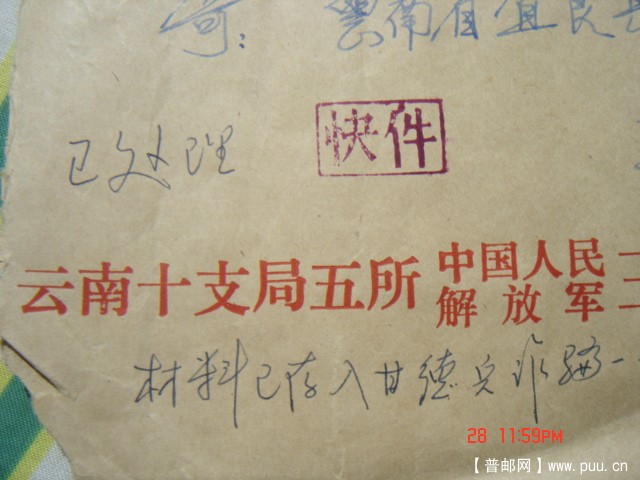 寄：云南省宜良县
已处理
快件
云南十支局五所 中国人民一
解放军二
材料已存入甘德兵诈骗一
28 11:59PM
【普邮网】www.puu.cn